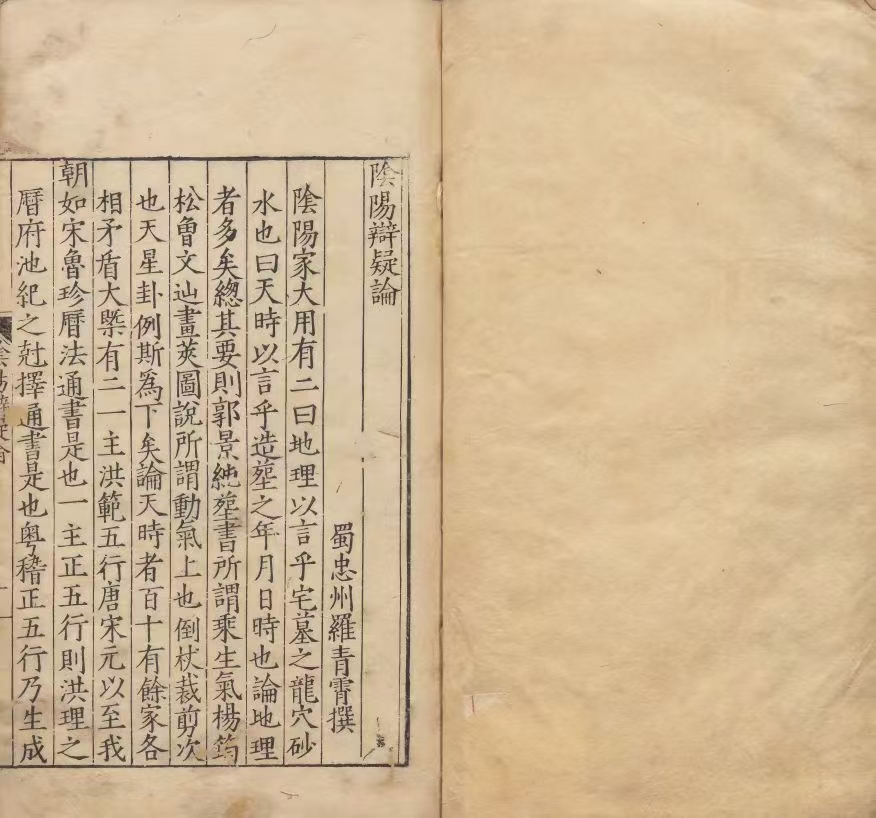 陰陽辯疑論
蜀忠州羅青霄撰
陰陽家大用有二曰地理以言乎宅墓之龍穴砂
水也曰天時以言乎造塟之年月日時也論地理
者多矣總其要則郭景純塟書所謂乘生氣楊筠
松曾文辿畫莢圖說所謂動氣上也倒杖裁剪次
也天星卦例斯爲下矣論天時者百十有餘家各
相矛盾大槩有二一主洪範五行唐宋元以至我
朝如宋魯珍曆法通書是也一主正五行則洪理之
曆府池紀之尅擇通書是也粤稽正五行乃生成